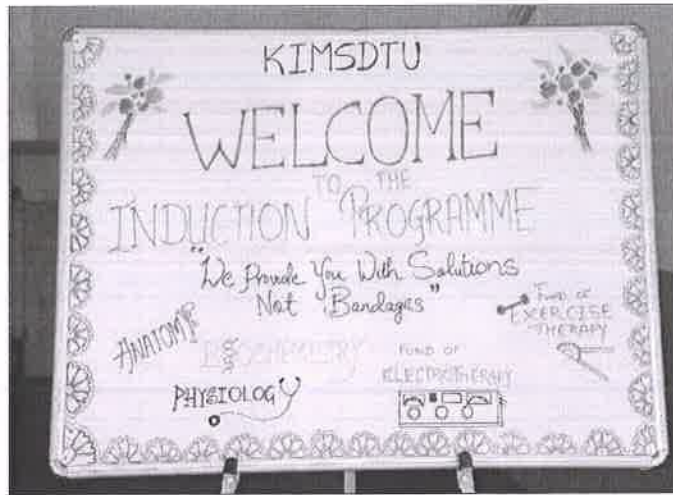 KIMSDTU
WELCOME
TO THE
INDUCTION PROGRAMME
"We Provide You With Solutions
Not Bandages"
ANATOMY
BIOCHEMISTRY
PHYSIOLOGY
FUND OF
ELECTROTHERAPY
FUND OF
EXERCISE
THERAPY